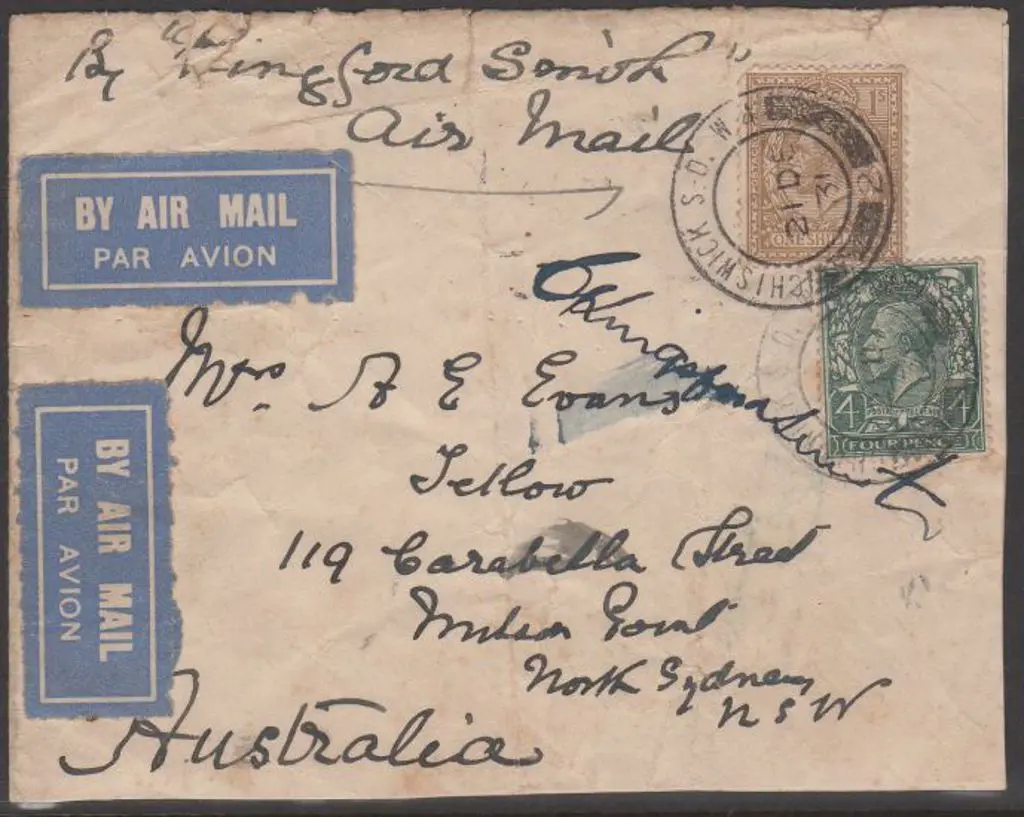 By "Kingsford Smith"
Air Mail
BY AIR MAIL
PAR AVION
1S
ONE SHILLING
CHISWICK S.O. W.4
21 DE
31
2
CKingsford Smith
4 4
POSTAGE REVENUE
FOUR PENCE
Mrs A E Evans
Tetlow
119 Carabella Street
Milson Point
North Sydney
N S W
BY AIR MAIL
PAR AVION
Australia